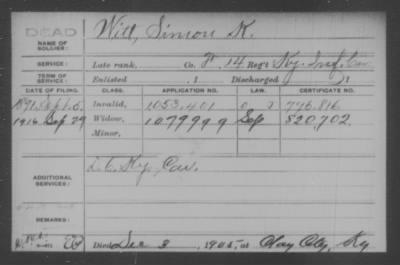 DEAD
NAME OF SOLDIER: Will, Simon K.
SERVICE: Late rank, Co. F, 14 Reg't Ky. Inf. Cav.
TERM OF SERVICE: Enlisted , 1 Discharged , 1
DATE OF FILING. CLASS. APPLICATION NO. LAW. CERTIFICATE NO.
1891 Sept. 5. Invalid, 1053.401 776.816
1916 Sep 29 Widow, 1079999 Sep 820,702
Minor,
ADDITIONAL SERVICES: Ky. Cav.
REMARKS:
Died Dec 3, 1905, at Clay City, Ky